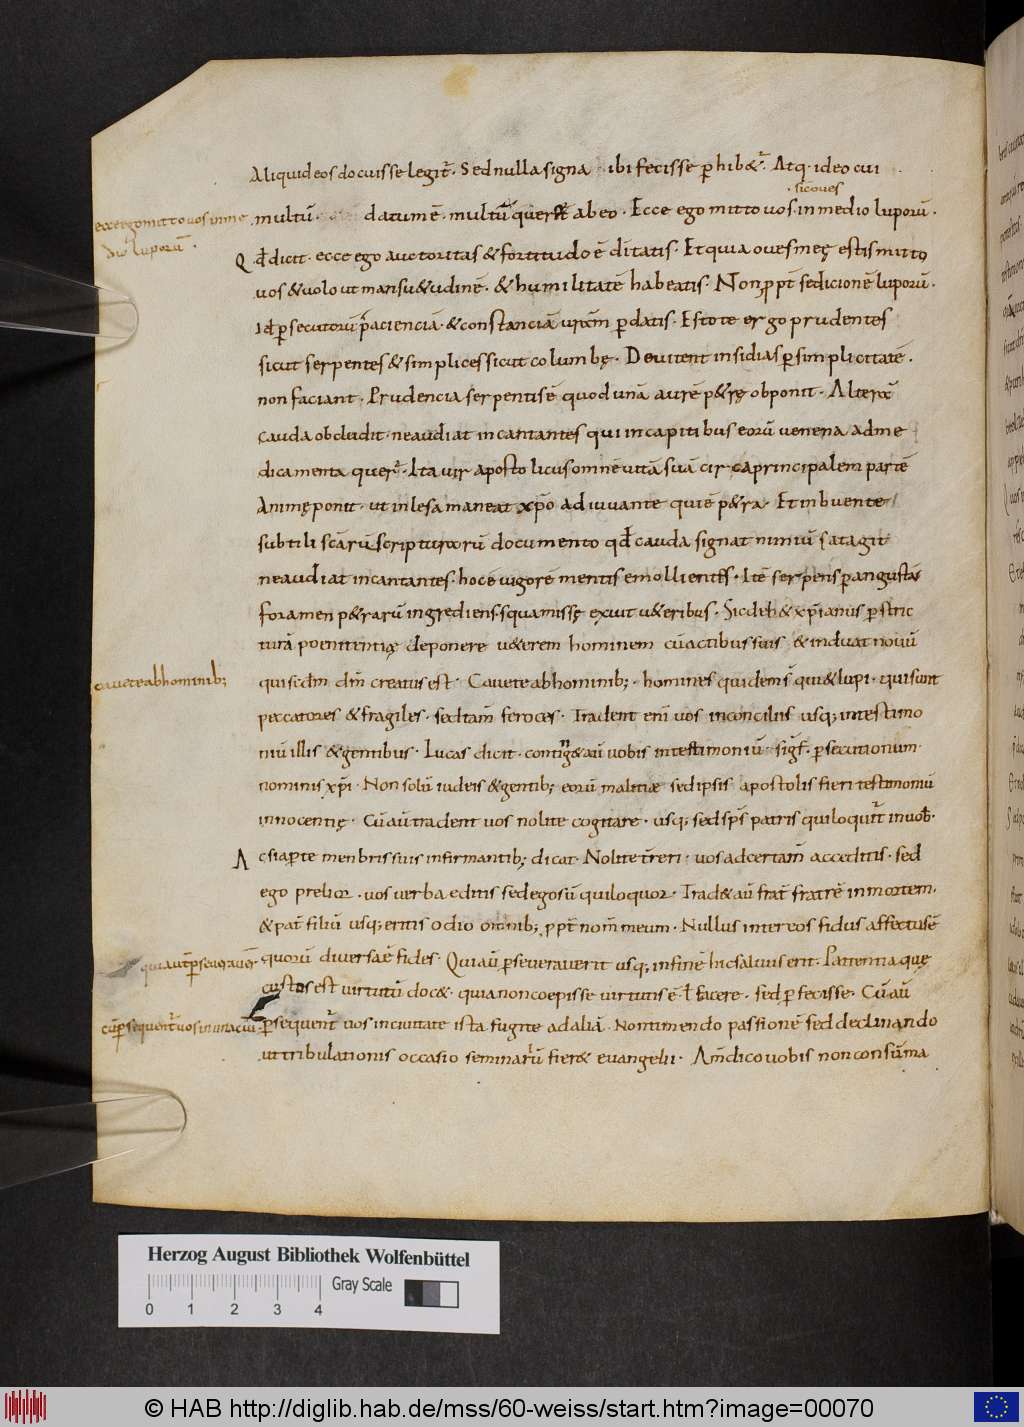 Aliquid eos docuisse legit̄. Sed nulla signa ibi fecisse ꝑhib&̄. Atq. ideo cui
sic oves
ecce ego mitto vos in me
multū. datum ē. multū queret̄ ab eo. Ecce ego mitto vos. in medio luporū.
dio luporū.
Qđ dicit. ecce ego auctoritas & fortitudo ē ditatis. Et quia oves meę estis mitto
vos & volo ut mansu&udinē. & humilitatē habeatis. Non ꝓpt̄ sedicionē luporū.
Id ꝑsecutorū paciencia. & constanciā vrām ꝑdatis. Estote ergo prudentes
sicut serpentes & simplices sicut columbę. Devitent insidias ꝑ simplicitatē.
non faciant. Prudencia serpentis ē quod unā aurē p&rę obponit. Alterā
cauda obcludit. ne audiat incantantes qui in capitibus eorū venena ad me
dicamenta quer̄. Ita vir apostolicus omnē vitā suā circa principalem partē
Animę ponit. ut inlesa maneat xp̄o adiuvante qui ē p&ra. Et inbuente
subtili scārū scripturarū documento qđ cauda signat nimiū satagit
ne audiat incantantes. hoc ē vigorē mentis emollientes. Itē serpens ꝑ angustā
foramen p&rarū ingrediens squamissę exuit v&eribus. Sic deb& xp̄ianus ꝑ stric
turā poenitentię deponere v&erem hominem cū actibus suis & induat novū
cavete ab hominib;
qui scdm̄ dm̄ creatus est. Cavete ab hominib;. homines quidem s̄ qui & lupi. qui sunt
peccatores & fragiles. sed tam̄ feroces. Tradent eni vos in conciliis usq; in testimo
niū illis & gentibus. Lucas dicit. conting& aū vobis in testimoniū. ꝑsecutionum
nominis xp̄i. Non solū iudeis & gentib; eorū malitiae sed ipsis apostolis fieri testimoniū
innocentię. Cū aū tradent vos nolite cogitare. usq; sed sp̄s patris qui loquit̄ in vob̄.
Ac si aperte menbris suis infirmantib; dicat. Nolite tr̄eri. vos ad certam̄ acceditis. sed
ego prelior. vos verba editis sed ego sū qui loquor. Trad& aū frat̄ fratrē in mortem.
& pat̄ filiū usq; eritis odio omnib; ꝓpt̄ nom̄ meum. Nullus inter eos fidus affectus ē
qui aut ꝑseveraver̄
quorū diversa ē fides. Qui aū ꝑseveraverit usq; in finē hic salvus erit. Patientia quę
custos est virtutū doc&. quia non coepisse virtutis ē ł facere. sed ꝑfecisse. Cū aū
cū ꝑsequent̄ vos in una civi
ꝑsequent̄ vos in civitate ista fugite ad aliā. Non timendo passionē sed declinando
ut tribulationis occasio seminariū fier& evangelii. Am̄ dico vobis non consūma
Herzog August Bibliothek Wolfenbüttel
Gray Scale
0 1 2 3 4
© HAB http://diglib.hab.de/mss/60-weiss/start.htm?image=00070